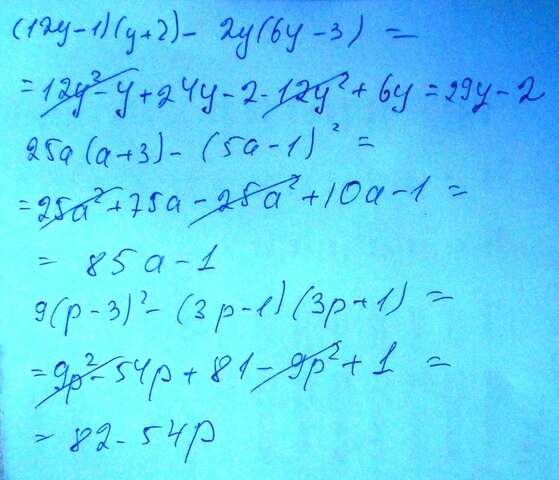 (12y-1)(y+2)- 2y(6y-3) =
= 12y²-y+24y-2-12y²+6y=29y-2
25a(a+3)-(5a-1)² =
= 25a²+75a-25a²+10a-1 =
= 85a-1
9(p-3)²-(3p-1)(3p+1) =
= 9p²-54p+81-9p²+1 =
= 82-54p